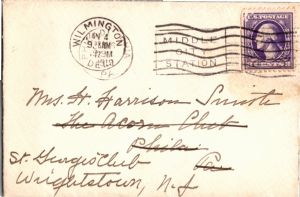 WILMINGTON
DEL
MIDDLE
CITY
STATION
U.S. POSTAGE
CENTS
Mrs. H. Harrison Smith
The Acorn Club
Phila
Pa
St. Georges Club
Wrightstown, N.J